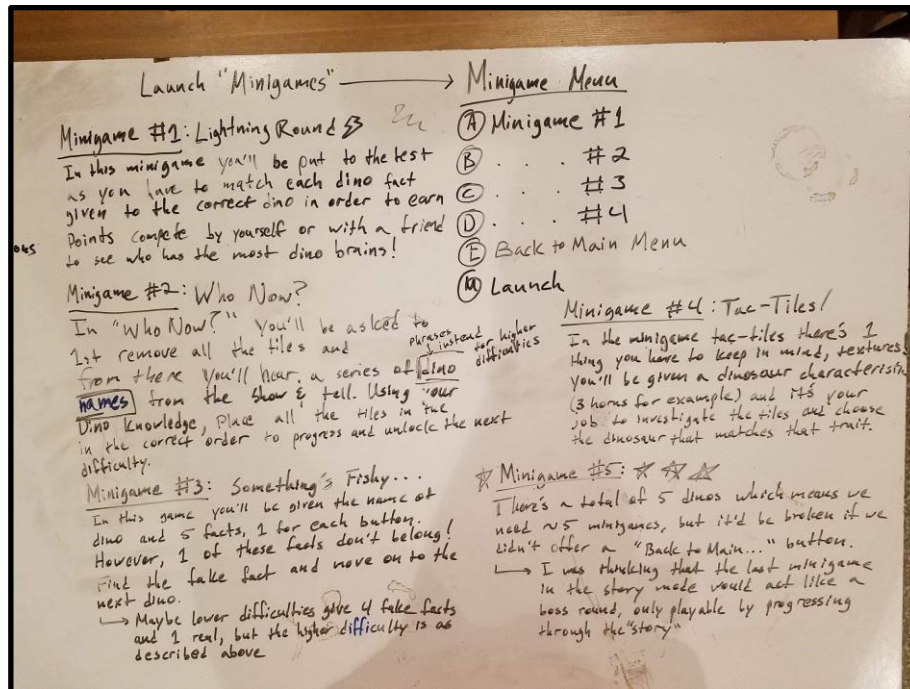 Launch "Minigames" → Minigame Menu
Minigame #1: Lightning Round
In this minigame you'll be put to the test
as you have to match each dino fact
given to the correct dino in order to earn
Points compete by yourself or with a friend
to see who has the most dino brains!
A Minigame #1
B . . . #2
C . . . #3
D . . . #4
E Back to Main Menu
M Launch
Minigame #2: Who Now?
In "Who Now?" You'll be asked to
1st remove all the tiles and
phrases instead for higher difficulties
from there you'll hear a series of dino
names from the show & tell. Using your
Dino knowledge, Place all the tiles in the
in the correct order to progress and unlock the next
difficulty.
Minigame #3: Something's Fishy...
In this game you'll be given the name of
dino and 5 facts, 1 for each button.
However, 1 of these facts don't belong!
Find the fake fact and move on to the
next dino.
→ Maybe lower difficulties give 4 fake facts
and 1 real, but the higher difficulty is as
described above
Minigame #4: Tac-Tiles!
In the minigame tac-tiles there's 1
thing you have to keep in mind, textures
You'll be given a dinosaur characteristic
(3 horns for example) and it's your
job to investigate the tiles and choose
the dinosaur that matches that trait.
☆ Minigame #5: ☆ ☆ ☆
There's a total of 5 dinos which means we
need ~5 minigames, but it'd be broken if we
didn't offer a "Back to Main..." button.
→ I was thinking that the last minigame
in the story mode would act like a
boss round, only playable by progressing
through the "story"